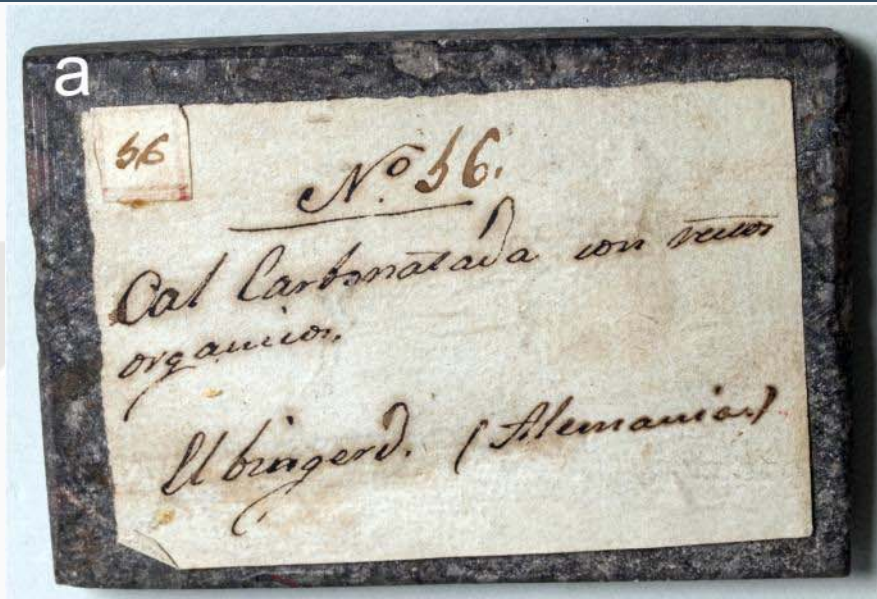 a
56
Nº 56.
Cal Carbonatada con restos
organicos.
Elbingerod. (Alemania.)